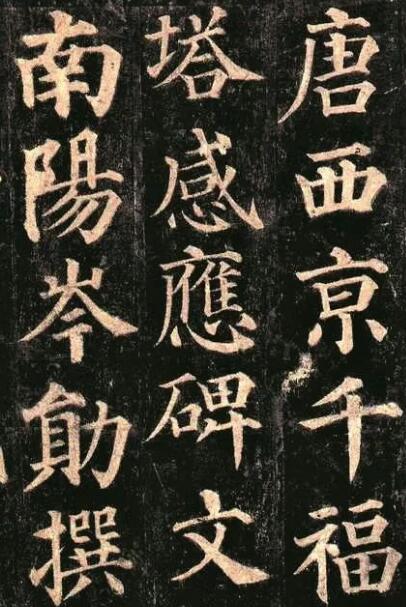 唐西京千福
塔感應碑文
南陽岑勛撰